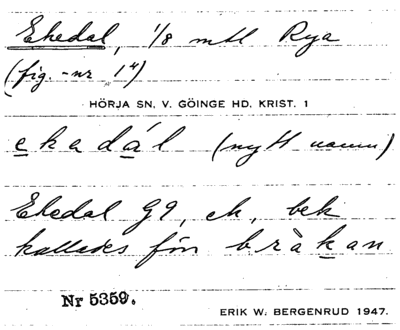 Ekedal, 1/8 mtl Rya
(fig. -nr 1⁴)
HÖRJA SN. V. GÖINGE HD. KRIST. 1
ekadál (nytt namn)
Ekedal G9, ek, bek
kallades förr bràkan
Nr 5359.
ERIK W. BERGENRUD 1947.